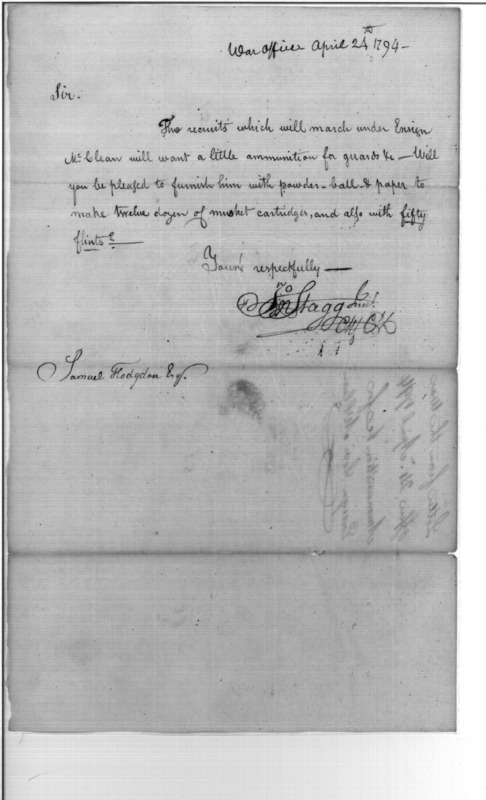 War Office April 24th 1794 -
Sir.
The recruits which will march under Ensign
McClean will want a little ammunition for guards &c - Will
you be pleased to furnish him with powder - ball - & paper to
make twelve dozen of musket cartridges, and also with fifty
flints
Yours respectfully -
Jno Stagg Junr.
Samuel Hodgdon Esq.